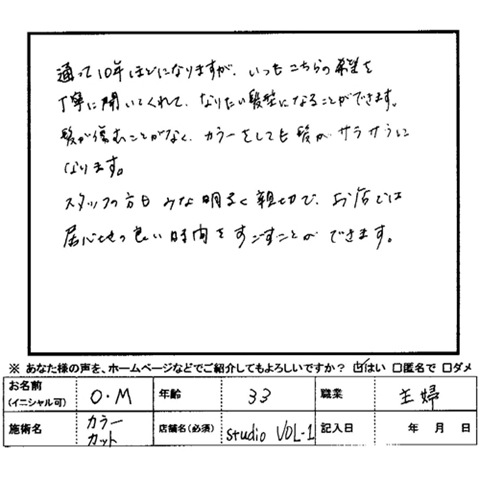 通って10年ほどになりますが、いつもこちらの希望を
丁寧に聞いてくれて、なりたい髪型になることができます。
髪が傷むことがなく、カラーをしても髪がサラサラに
なります。
スタッフの方も みな明るく親切で、お店では
居心地の良い時間をすごすことができます。
※ あなた様の声を、ホームページなどでご紹介してもよろしいですか？ ☑はい □匿名で □ダメ
お名前 (イニシャル可) O・M 年齢 33 職業 主婦
施術名 カラー カット 店舗名(必須) studio VOL-1 記入日 年 月 日